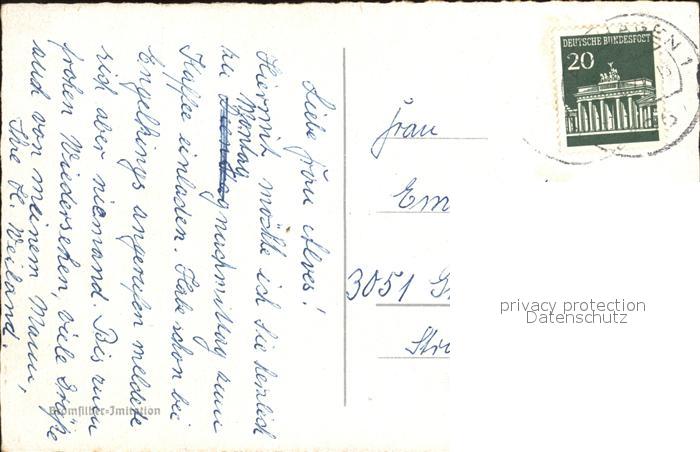 Liebe Frau Alves!
Hiermit möchte ich Sie herzlich
Montag
zu nachmittag zum
Kaffee einladen. Habe schon bei
Engelkings angerufen meldete
sich aber niemand. Bis zum
frohen Wiedersehen, viele Grüße
auch von meinem Mann,
Ihre H. Weiland.
Bromsilber-Imitation
Frau
Em
3051 G
Str
DEUTSCHE BUNDESPOST
20
HAGEN 1
privacy protection
Datenschutz